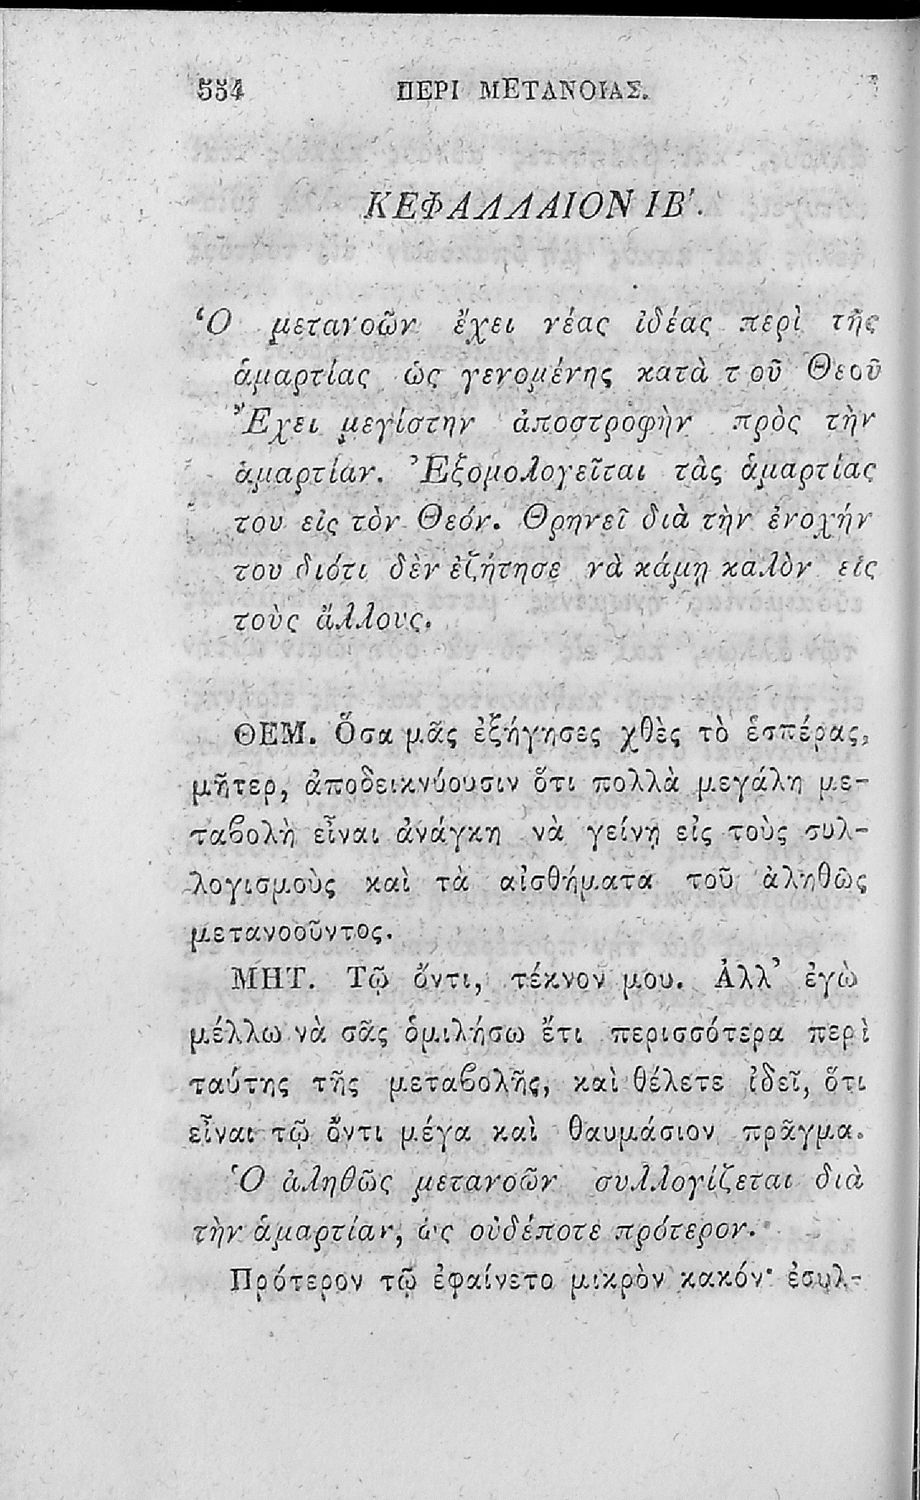 554 ΠΕΡΙ ΜΕΤΑΝΟΙΑΣ.
ΚΕΦΑΛΛΑΙΟΝ ΙΒ'.
Ὁ μετανοῶν ἔχει νέας ἰδέας περὶ τῆς
ἁμαρτίας ὡς γενομένης κατὰ τοῦ Θεοῦ
Ἔχει μεγίστην ἀποστροφὴν πρὸς τὴν
ἁμαρτίαν. Ἐξομολογεῖται τὰς ἁμαρτίας
του εἰς τὸν Θεόν. Θρηνεῖ διὰ τὴν ἐνοχήν
του διότι δὲν ἐζήτησε νὰ κάμῃ καλὸν εἰς
τοὺς ἄλλους.
ΘΕΜ. Ὅσα μᾶς ἐξήγησες χθὲς τὸ ἑσπέρας,
μῆτερ, ἀποδεικνύουσιν ὅτι πολλὰ μεγάλη με-
ταβολὴ εἶναι ἀνάγκη νὰ γείνῃ εἰς τοὺς συλ-
λογισμοὺς καὶ τὰ αἰσθήματα τοῦ ἀληθῶς
μετανοοῦντος.
ΜΗΤ. Τῷ ὄντι, τέκνον μου. Ἀλλ' ἐγὼ
μέλλω νὰ σᾶς ὁμιλήσω ἔτι περισσότερα περὶ
ταύτης τῆς μεταβολῆς, καὶ θέλετε ἰδεῖ, ὅτι
εἶναι τῷ ὄντι μέγα καὶ θαυμάσιον πρᾶγμα.
Ὁ ἀληθῶς μετανοῶν συλλογίζεται διὰ
τὴν ἁμαρτίαν, ὡς οὐδέποτε πρότερον.
Πρότερον τῷ ἐφαίνετο μικρὸν κακόν· ἐσυλ-